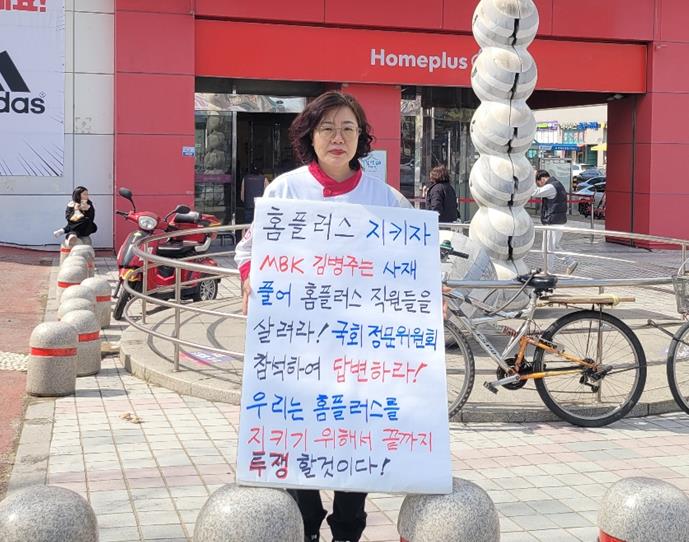 adidas
Homeplus
홈플러스 지키자
MBK 김병주는 사재
풀어 홈플러스 직원들을
살려라! 국회 정문위원회
참석하여 답변하라!
우리는 홈플러스를
지키기 위해서 끝까지
투쟁 할것이다!